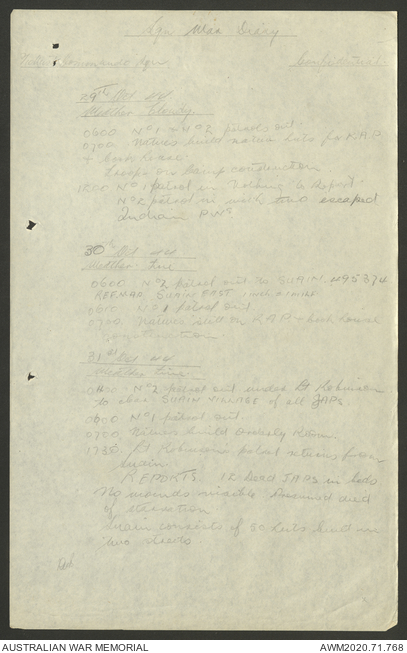 Sqn War Diary
Commando Sqn Confidential.
29th Oct 44
Weather Cloudy
0600 No 1 & No 2 patrols out.
0700 Natives build native huts for RAP
& Cook house.
Troops on camp construction
1800 No 1 patrol in Nothing to Report
No 2 patrol in with two escaped
Indian PWs
30th Oct 44
Weather Fine
0600 No 2 patrol out to SUAIN 495374
SUAIN EAST
0610 No 1 patrol out
0700 Natives still on RAP & Cook house
construction
31st Oct 44
Weather Fine
No 2 patrol out under Lt Robinson
to clear SUAIN VILLAGE of all JAPS
0600 No 1 patrol out.
0700 Natives build Orderly Room.
1735 Lt Robinsons patrol returns from
Suain.
REPORTS 12 Dead JAPS in huts
No wounds visible Presumed died
of starvation
Suain consists of 30 huts built in
two
AUSTRALIAN WAR MEMORIAL AWM2020.71.768